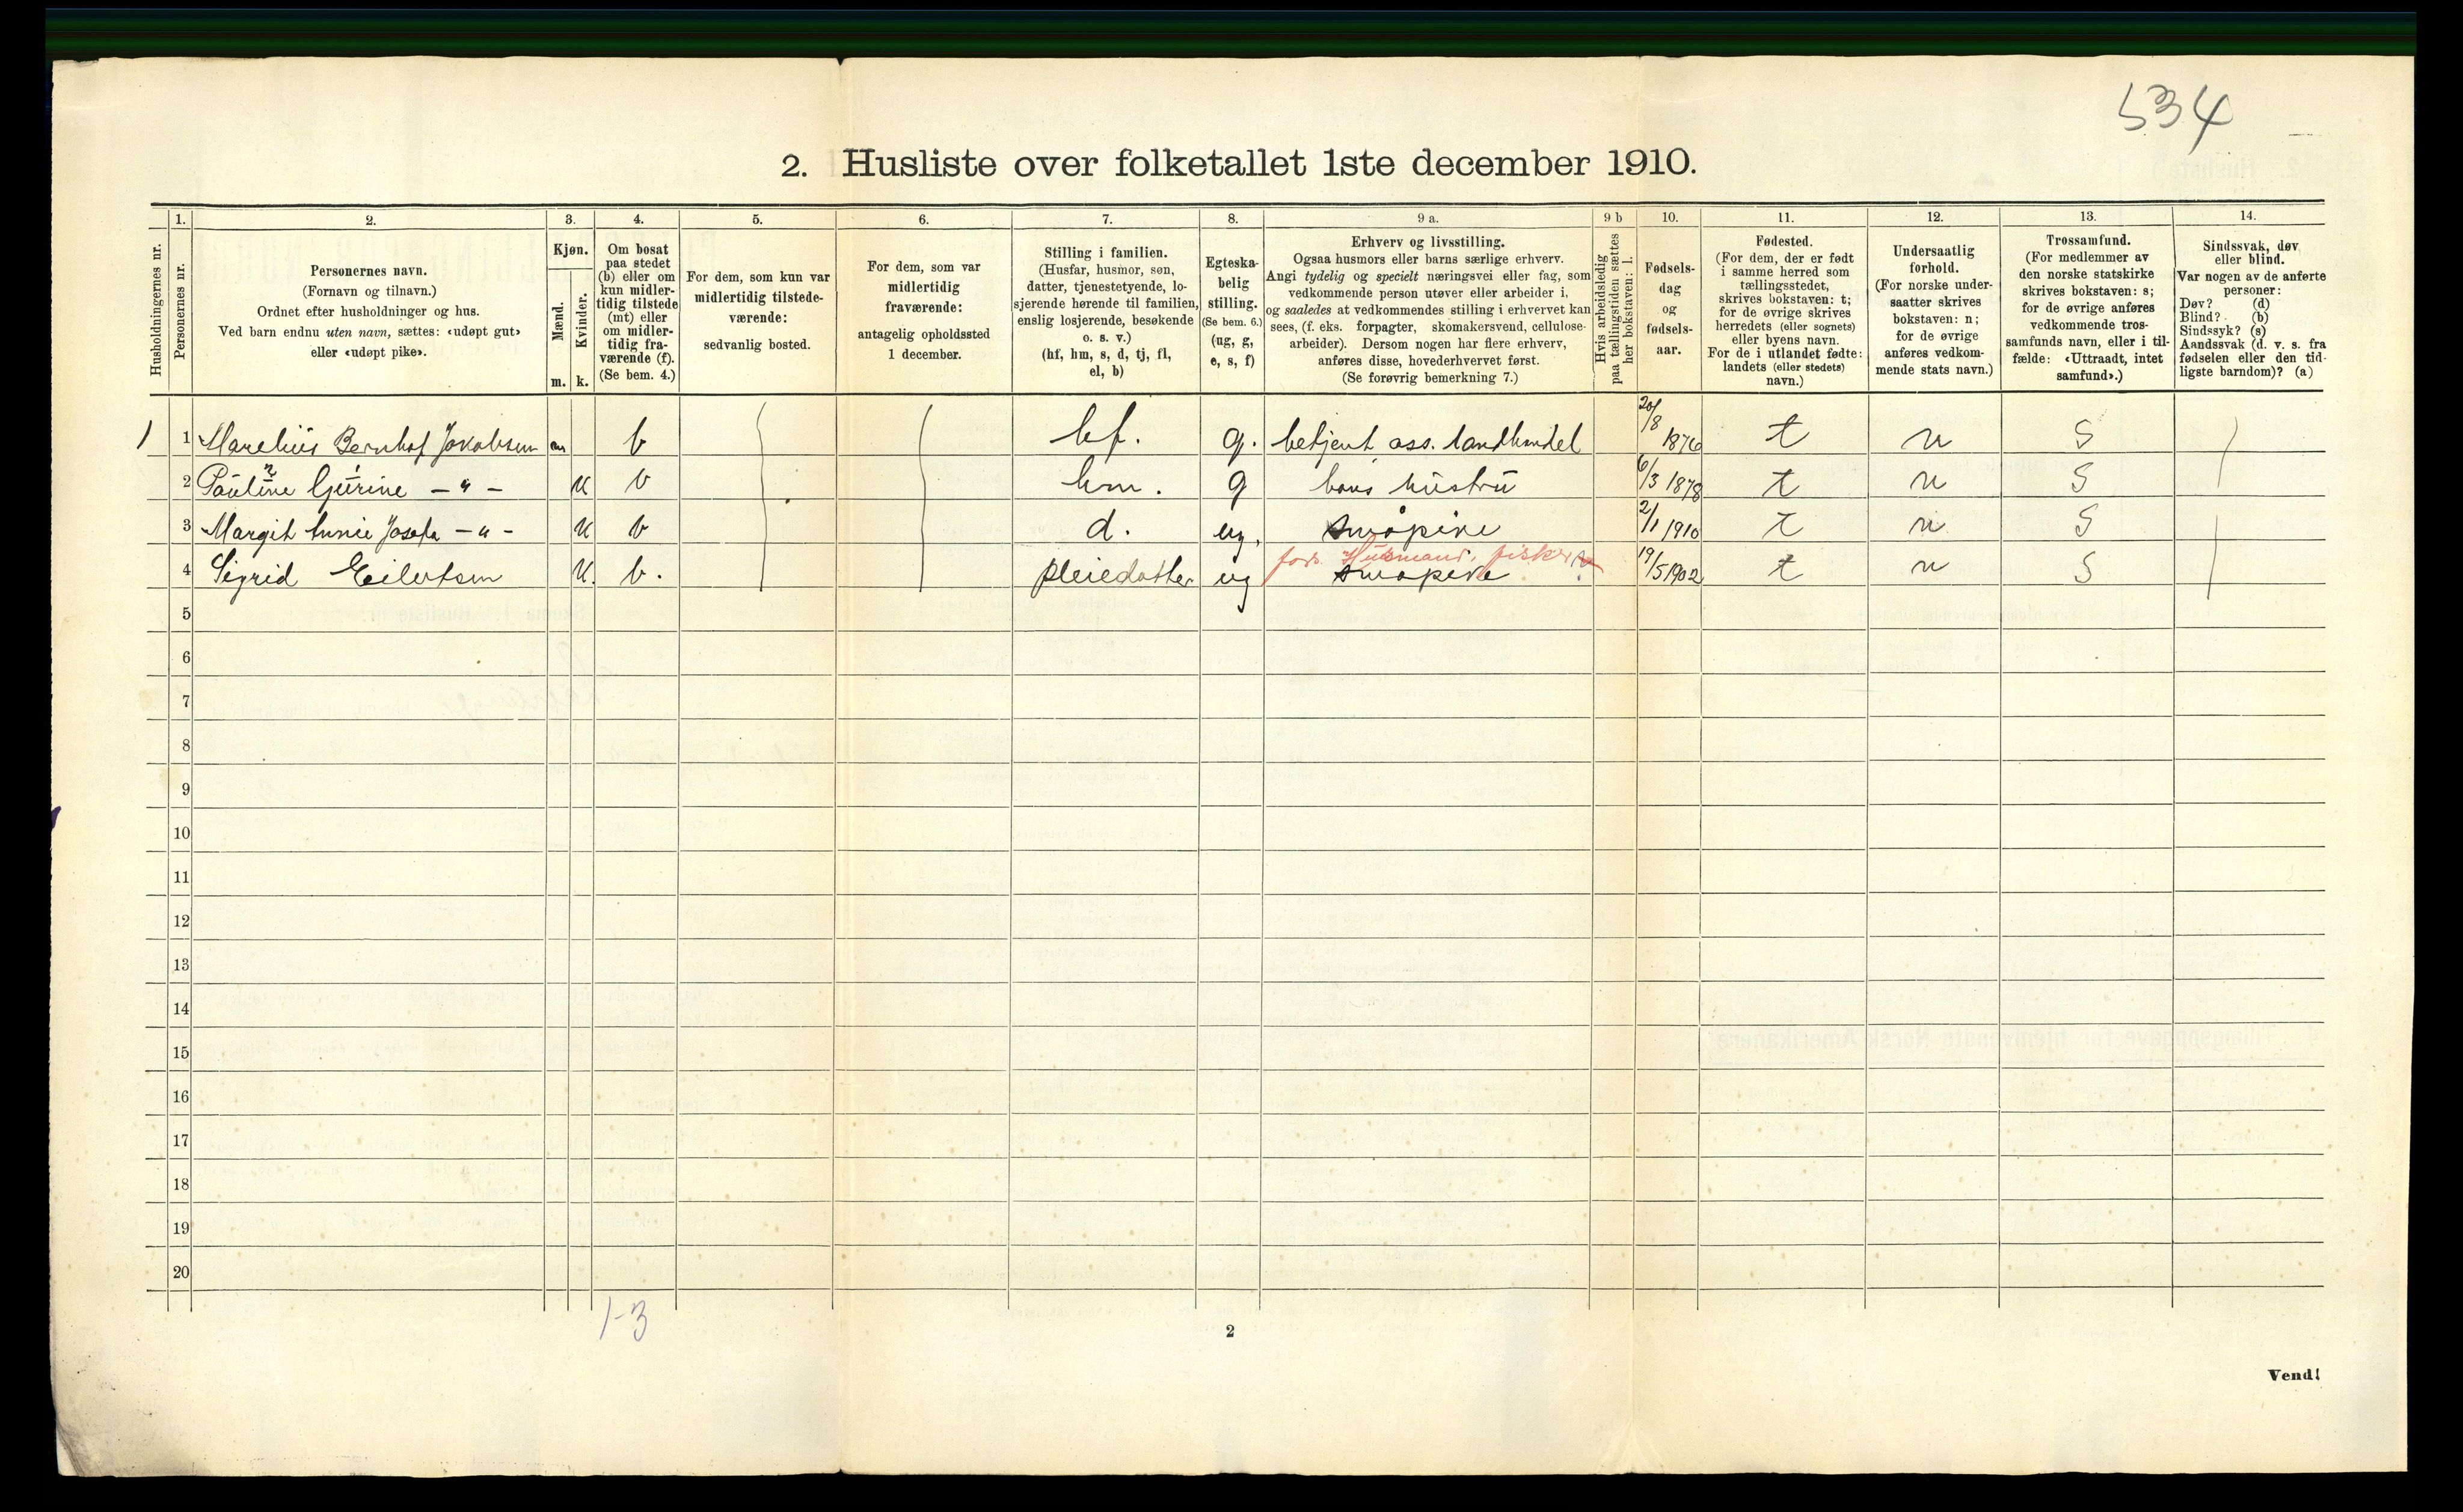 534
2. Husliste over folketallet 1ste december 1910.
Husholdningernes nr.
1.
Personernes nr.
2.
Personernes navn.
(Fornavn og tilnavn.)
Ordnet efter husholdninger og hus.
Ved barn endnu uten navn, sættes: «udøpt gut»
eller «udøpt pike».
3.
Kjøn.
Mænd.
Kvinder.
m.
k.
4.
Om bosat
paa stedet
(b) eller om
kun midler-
tidig tilstede
(mt) eller
om midler-
tidig fra-
værende (f).
(Se bem. 4.)
5.
For dem, som kun var
midlertidig tilstede-
værende:
sedvanlig bosted.
6.
For dem, som var
midlertidig
fraværende:
antagelig opholdssted
1 december.
7.
Stilling i familien.
(Husfar, husmor, søn,
datter, tjenestetyende, lo-
sjerende hørende til familien,
enslig losjerende, besøkende
o. s. v.)
(hf, hm, s, d, tj, fl,
el, b)
8.
Egteska-
belig
stilling.
(Se bem. 6.)
(ug, g,
e, s, f)
9 a.
Erhverv og livsstilling.
Ogsaa husmors eller barns særlige erhverv.
Angi tydelig og specielt næringsvei eller fag, som
vedkommende person utøver eller arbeider i,
og saaledes at vedkommendes stilling i erhvervet kan
sees, (f. eks. forpagter, skomakersvend, cellulose-
arbeider). Dersom nogen har flere erhverv,
anføres disse, hovederhvervet først.
(Se forøvrig bemerkning 7.)
9 b
Hvis arbeidsledig
paa tællingstiden sættes
her bokstaven: l.
10.
Fødsels-
dag
og
fødsels-
aar.
11.
Fødested.
(For dem, der er født
i samme herred som
tællingsstedet,
skrives bokstaven: t;
for de øvrige skrives
herredets (eller sognets)
eller byens navn.
For de i utlandet fødte:
landets (eller stedets)
navn.)
12.
Undersaatlig
forhold.
(For norske under-
saatter skrives
bokstaven: n;
for de øvrige
anføres vedkom-
mende stats navn.)
13.
Trossamfund.
(For medlemmer av
den norske statskirke
skrives bokstaven: s;
for de øvrige anføres
vedkommende tros-
samfunds navn, eller i til-
fælde: «Uttraadt, intet
samfund».)
14.
Sindssvak, døv
eller blind.
Var nogen av de anførte
personer:
Døv? (d)
Blind? (b)
Sindssyk? (s)
Aandssvak (d. v. s. fra
fødselen eller den tid-
ligste barndom)? (a)
1 1 Marelius Bernhof Jakobsen m b hf. g. betjent ass. landhandel 20/8 1876 t n S
2 Pauline Gurine — " — k b hm. g hans hustru 6/3 1878 t n S
3 Margit Annie Josefa — " — k b d. ug. småpike 2/1 1910 t n S
fors. Husmand, fisker
4 Sigrid Eilertsen k. b. pleiedatter ug småpike 19/5 1902 t n S
5
6
7
8
9
10
11
12
13
14
15
16
17
18
19
20
1-3
2
Vend!